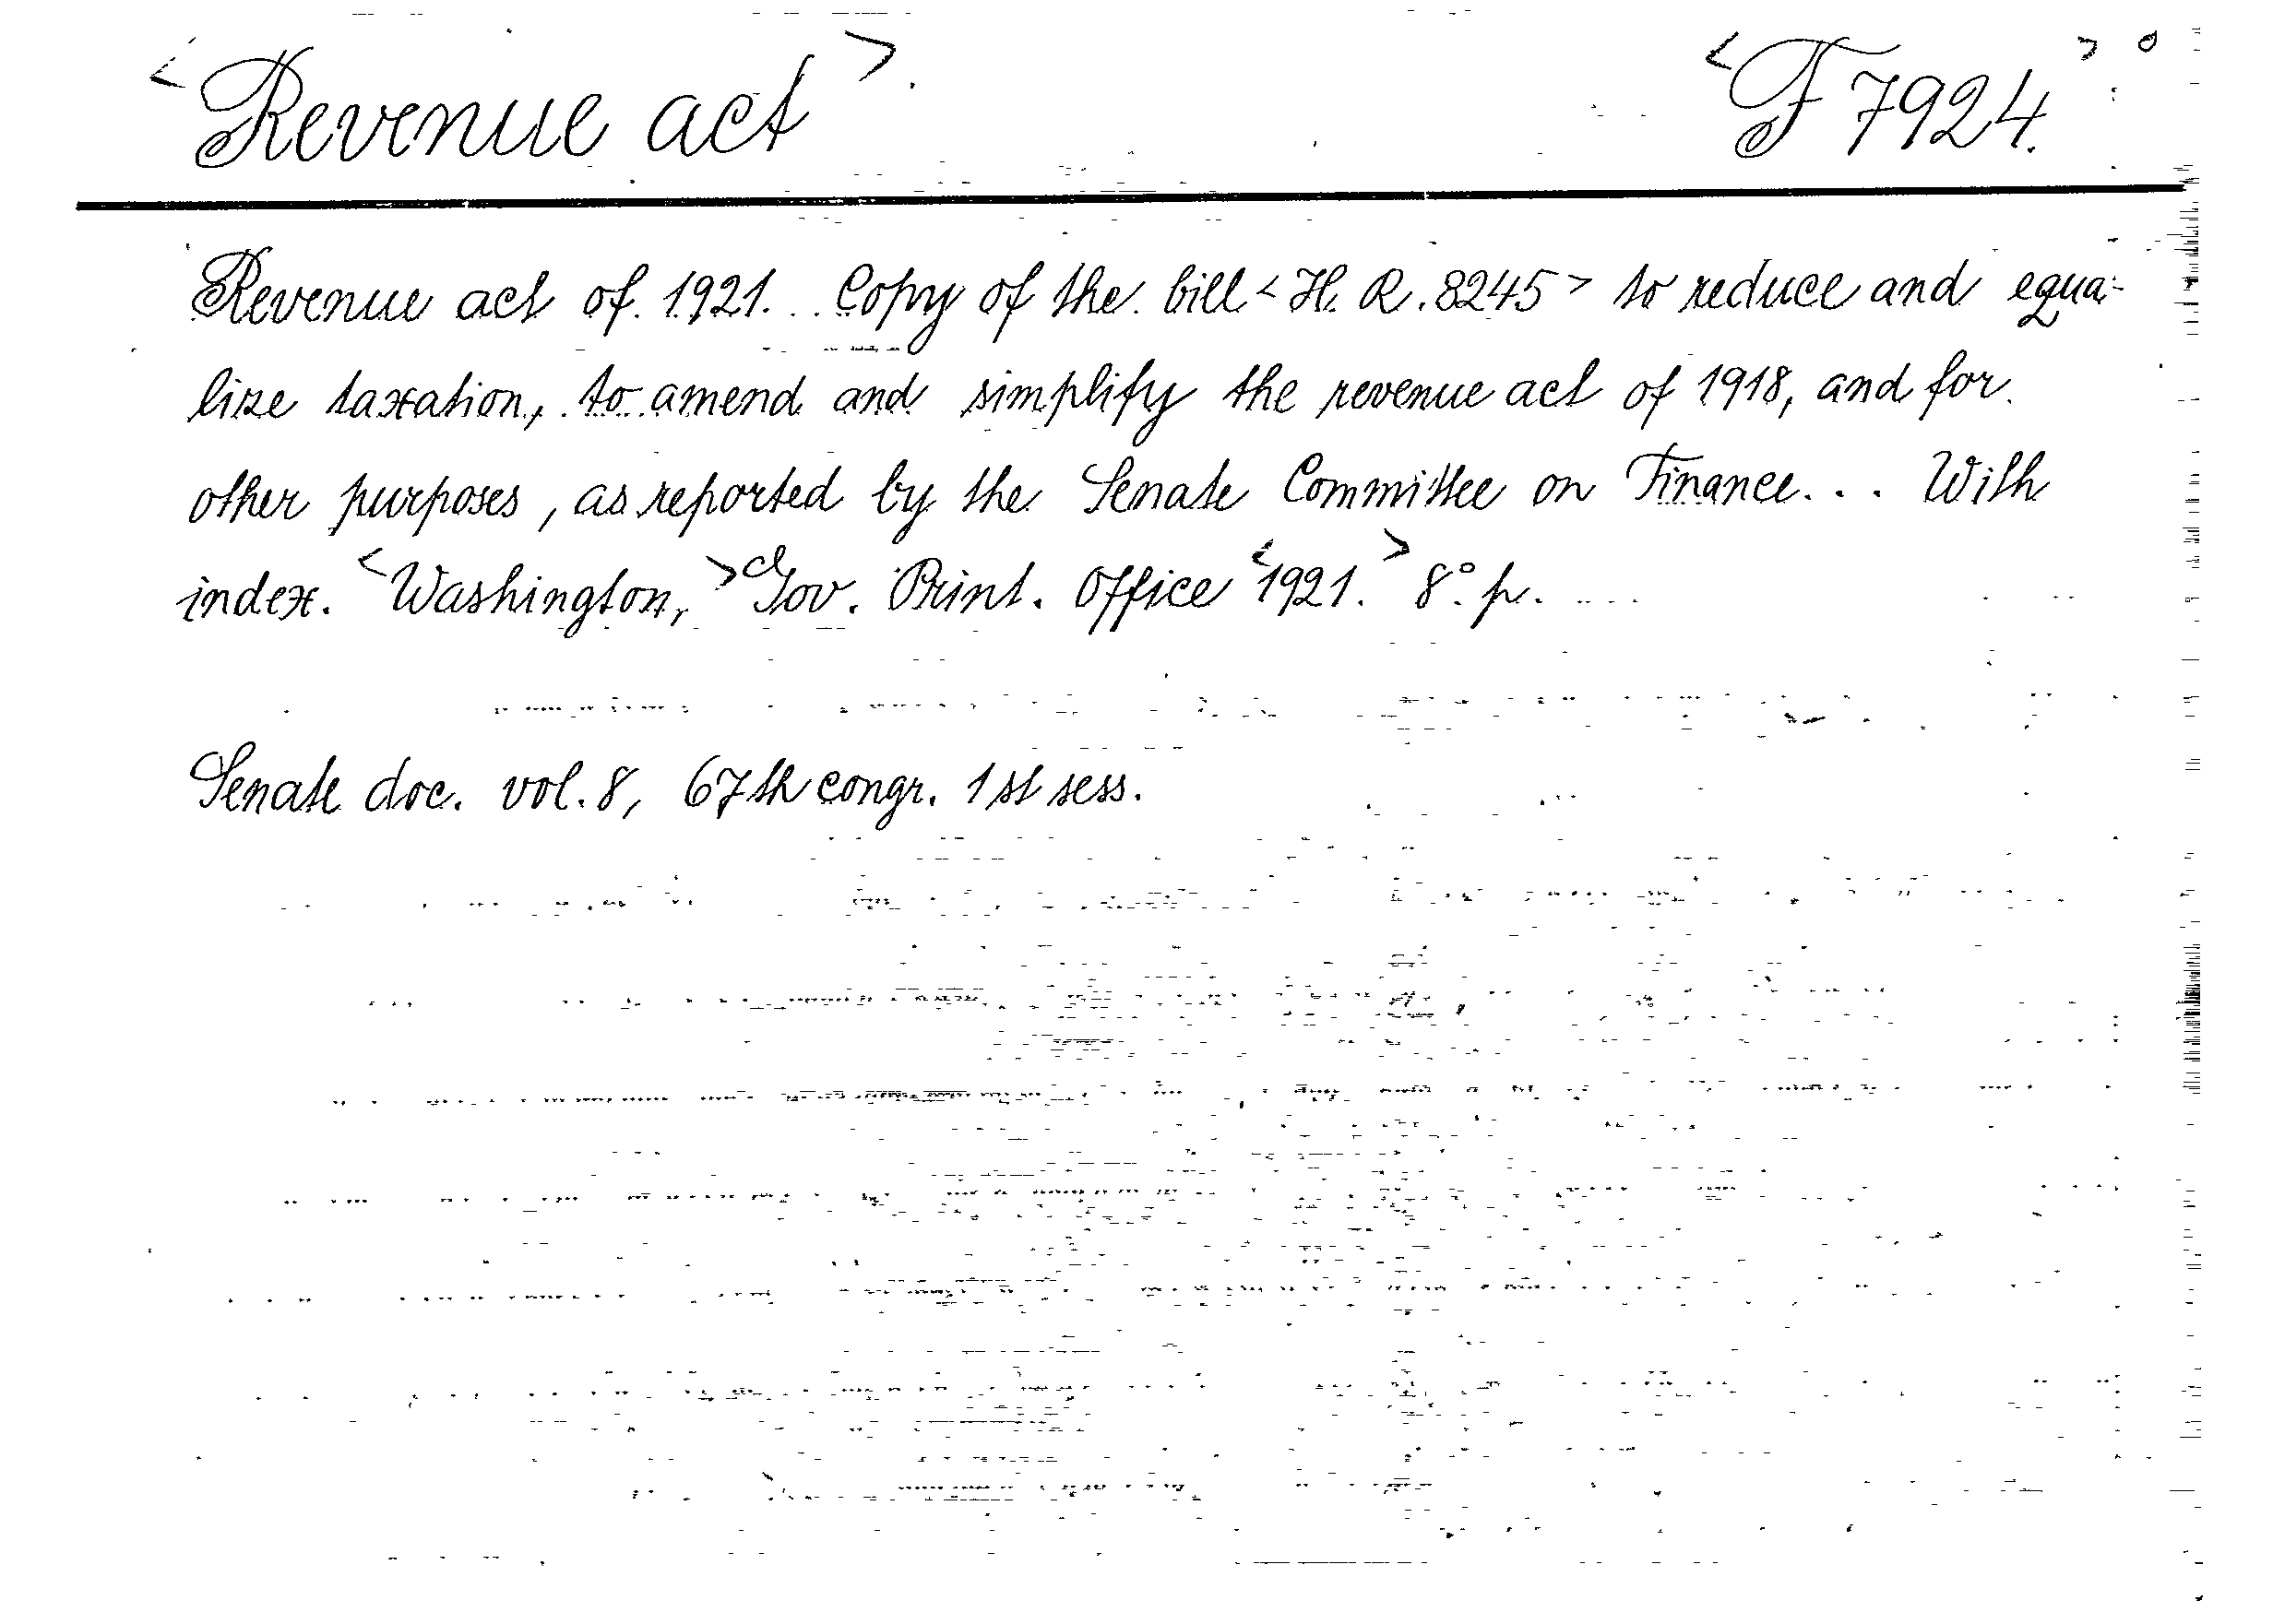 <Revenue act>. <F 7924.>°
Revenue act of 1921. .. Copy of the bill <H. R. 8245> to reduce and equa-
lize taxation, to amend and simplify the revenue act of 1918, and for
other purposes, as reported by the Senate Committee on Finance... With
index. <Washington,> Gov. Print. Office <1921.> 8°. p. ....
Senate doc. vol. 8, 67th congr. 1st sess.